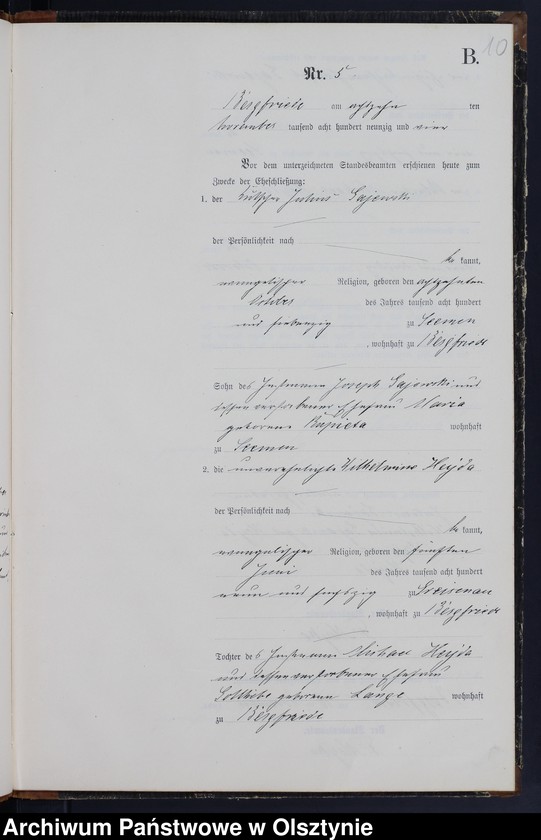 B.
10
Nr. 5
Bergfriede am achtzehn ten
November tausend acht hundert neunzig und vier
Vor dem unterzeichneten Standesbeamten erschienen heute zum
Zwecke der Eheschließung:
1. der Julius Gajewski
der Persönlichkeit nach
be kannt,
evangelischer Religion, geboren den achtzehnten
October des Jahres tausend acht hundert
und siebenzig zu Seemen
, wohnhaft zu Bergfriede
Sohn des Instmann Joseph Gajewski und
dessen verstorbener Ehefrau Maria
geborene wohnhaft
zu Seemen
2. die unverehelichte Wilhelmine Heyda
der Persönlichkeit nach
be kannt,
evangelischer Religion, geboren den fünften
Juni des Jahres tausend acht hundert
neun und sechszig zu
, wohnhaft zu Bergfriede
Tochter des Instmann Michael Heyda
und dessen verstorbener Ehefrau
Gottliebe geborene Lange wohnhaft
zu Bergfriede
Archiwum Państwowe w Olsztynie